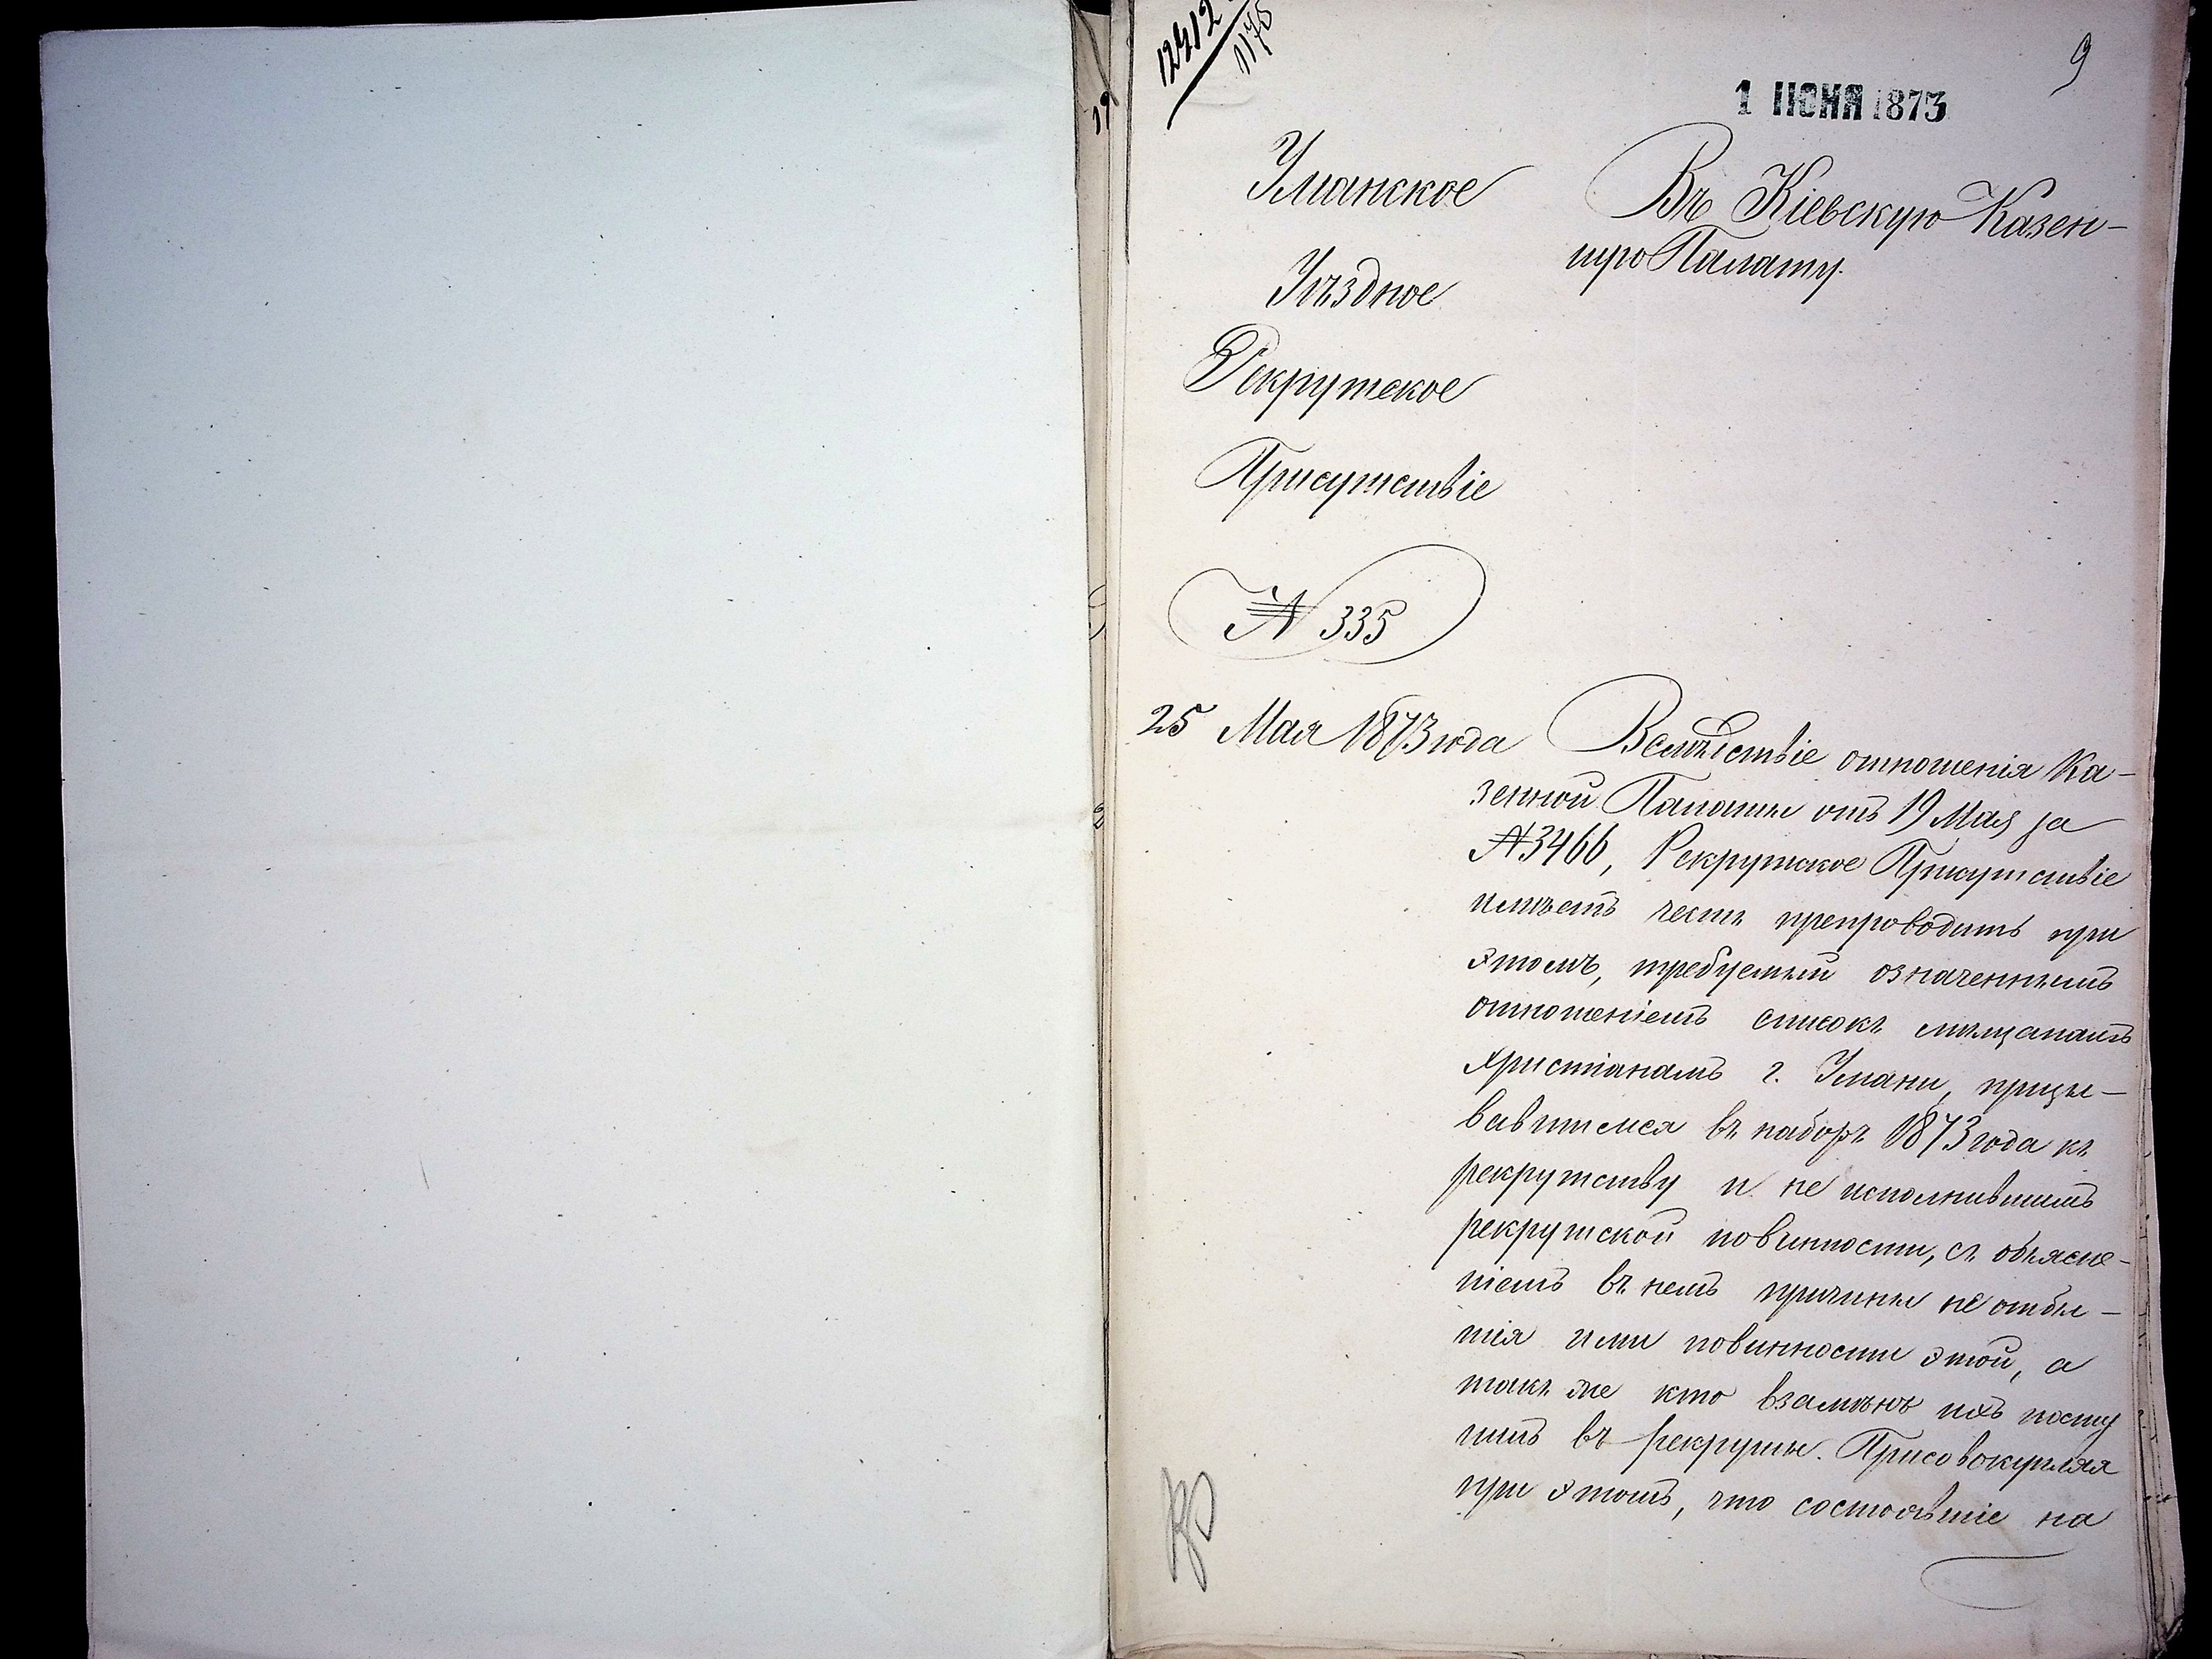 12412
1175
9
1 ІЮНЯ 1873
Уманское
Уѣздное
Рекрутское
Присутствіе
№ 335
25 Мая 1873 года
Въ Кіевскую Казен-
ную Палату.
Вслѣдствіе отношенія Ка-
зенной Палаты отъ 19 Мая за
№ 3466, Рекрутское Присутствіе
имѣетъ честь препроводить при
этомъ, требуемый означеннымъ
отношеніемъ списокъ мѣщанамъ
Христіанамъ г. Умани, призы-
вавшимся въ наборъ 1873 года къ
рекрутству и не исполнившимъ
рекрутской повинности, съ объясне-
ніемъ въ немъ причины не отбы-
тія ими повинности этой, а
такъ же кто взамѣнъ ихъ посту
пилъ въ рекруты. Присовокупляя
при этомъ, что состоявшіе на